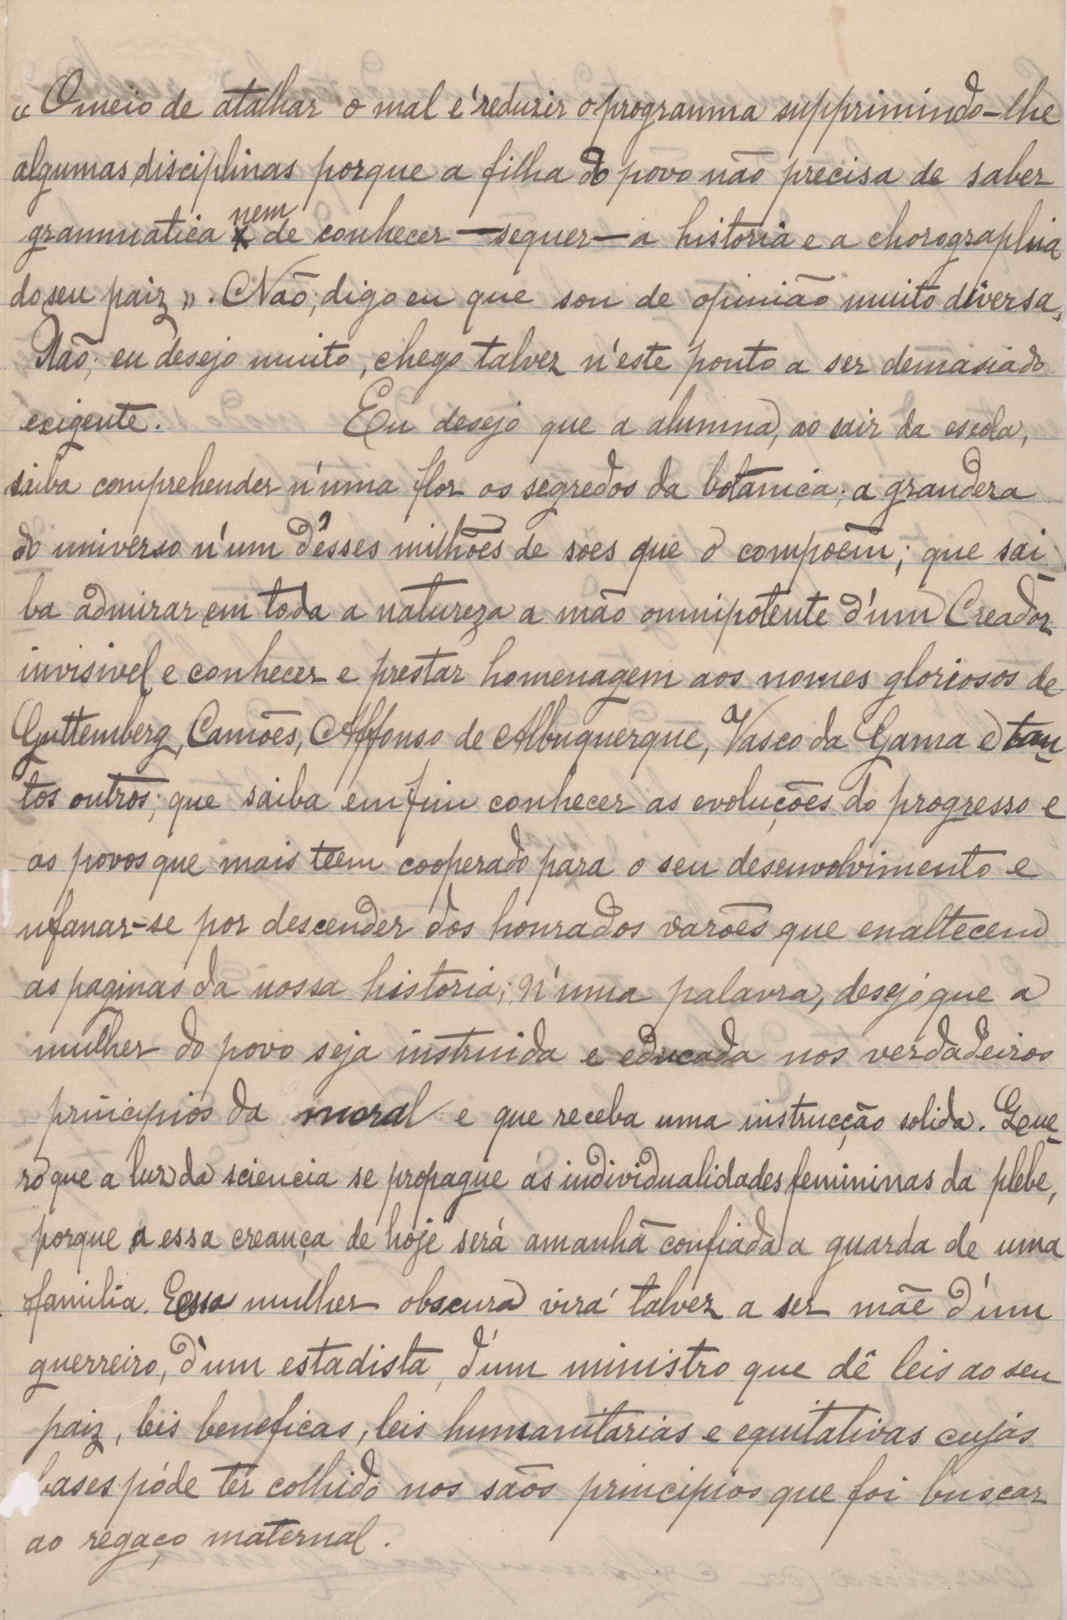 « O meio de atalhar o mal é reduzir o programma supprimindo-lhe
algumas disciplinas porque a filha do povo não precisa de saber
grammatica nem de conhecer — sequer — a historia e a chorographia
do seu paiz ». Não, digo eu que sou de opinião muito diversa.
Não; eu desejo muito, chego talvez n'este ponto a ser demasiado
exigente. Eu desejo que a alumna, ao sair da escola,
saiba comprehender n'uma flor os segredos da botanica; a grandeza
do universo n'um d'esses milhões de soes que o compoem; que sai-
ba admirar em toda a natureza a mão omnipotente d'um Creador
invisivel e conhecer e prestar homenagem aos nomes gloriosos de
Guttemberg, Camões, Affonso de Albuquerque, Vasco da Gama e tan-
tos outros; que saiba emfim conhecer as evoluções do progresso e
os povos que mais teem cooperado para o seu desenvolvimento e
ufanar-se por descender dos honrados varões que enaltecem
as paginas da nossa historia; n'uma palavra, desejo que a
mulher do povo seja instruida e educada nos verdadeiros
principios da moral e que receba uma instrucção solida. Que-
ro que a luz da sciencia se propague ás individualidades femininas da plebe,
porque a essa creança de hoje será amanhã confiada a guarda de uma
familia. Essa mulher obscura virá talvez a ser mãe d'um
guerreiro, d'um estadista, d'um ministro que dê leis ao seu
paiz, leis beneficas, leis humanitarias e equitativas cujas
bases póde ter colhido nos sãos principios que foi buscar
ao regaço maternal.